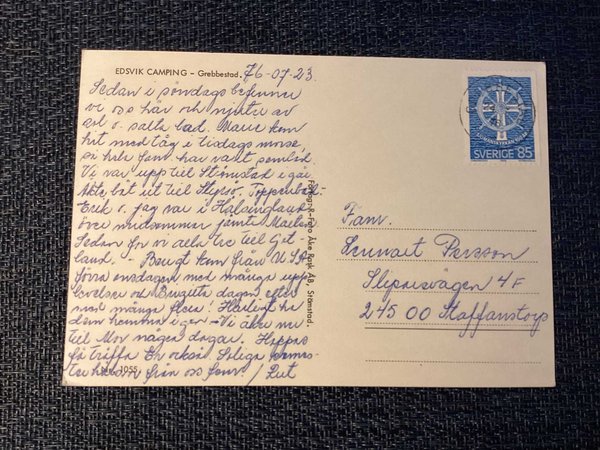 EDSVIK CAMPING – Grebbestad. 76-07-23
Sedan i söndags befinner
vi oss här och njuter av
sol o. salta bad. Marie kom
hit med tåg i tisdags morse,
så hela fam. har varit samlad.
Vi var upp till Strömstad i går
åkte båt ut till
Erik o. jag var i Hälsingland
över midsommar jämte Marlen
Sedan for vi alla tre till Got-
land. – Bengt kom från USA
förra onsdagen med många upp-
levelser och Birgitta dagen efter
med många flera! Härligt ha
dem hemma igen – Vi åker nu
till Mor några dagar. Hoppas
få träffa Er också. Soliga
från oss fam. / Rut
1955
Förlag: A-Foto Åke Rask AB, Strömstad.
SVERIGE 85
Fam.
Lennart Persson
Sliparevägen 4F
245 00 Staffanstorp